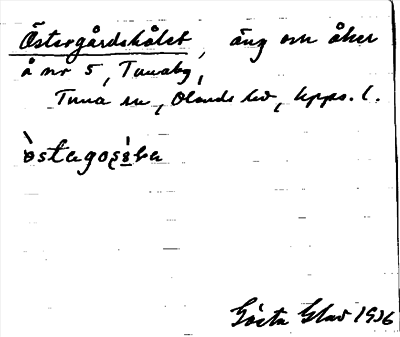 Östergårdshålet, äng om åker
å nr 5, Tunaby,
Tuna sn, Olands hd, Upps. l.
Gösta Glad 1916